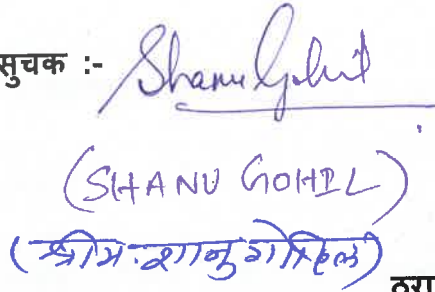 सुचक :- Shanu Gohil
(SHANU GOHIL)
(श्रीम. शानु गोहिल)
ठरा